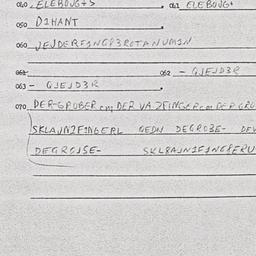 040 ELEBOUG+S . 041 ELEBOUG+
050 D1HANT
060 JEJDERFINGP3ROTANUM1N
061- 062 - QJEJD3R
063 - QJEJD3R .
070 DER-GROBER em DER VAZFINGER em DER GRO
SKLAJN2FINGERL QEDN DEGROBE- DEV
DEGROJSE- SKLRAJN1FINGRERU